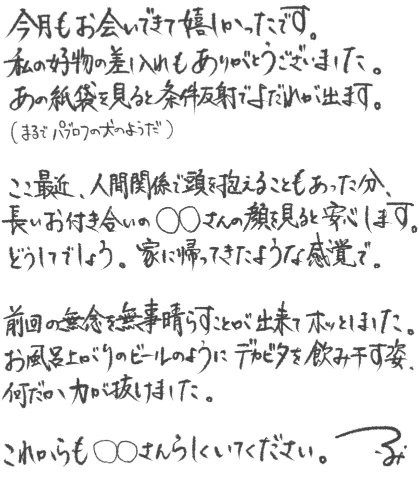 今月もお会いできて嬉しかったです。
私の好物の差し入れもありがとうございました。
あの紙袋を見ると条件反射でよだれが出ます。
(まるでパブロフの犬のようだ)
ここ最近、人間関係で頭を抱えることもあった分、
長いお付き合いの〇〇さんの顔を見ると安心します。
どうしてでしょう。家に帰ってきたような感覚で。
前回の無念を無事晴らすことが出来てホッとしました。
お風呂上がりのビールのようにデカビタを飲み干す姿、
何だか力が抜けました。
これからも〇〇さんらしくいてください。